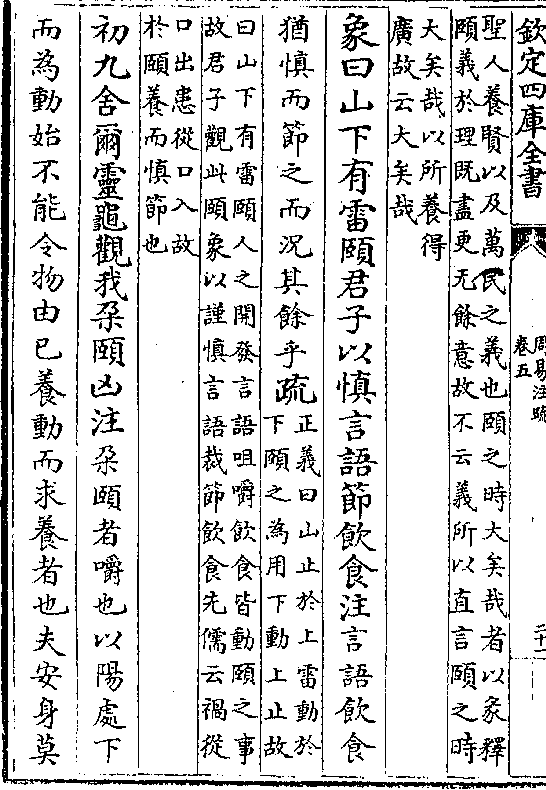 欽定四庫全書
周易注疏
卷五
二十二
聖人養賢以及萬民之義也頤之時大矣哉者以彖釋
頤義於理既盡更无餘意故不云義所以直言頤之時
大矣哉以所養得
廣故云大矣哉
象曰山下有雷頤君子以慎言語節飲食注言語飲食
猶慎而節之而況其餘乎疏
正義曰山止於上雷動於
下頤之為用下動上止故
曰山下有雷頤人之開發言語咀嚼飲食皆動頤之事
故君子觀此頤象以謹慎言語裁節飲食先儒云禍從
口出患從口入故
於頤養而慎節也
初九舍爾靈龜觀我朶頤凶注朶頤者嚼也以陽處下
而為動始不能令物由己養動而求養者也夫安身莫